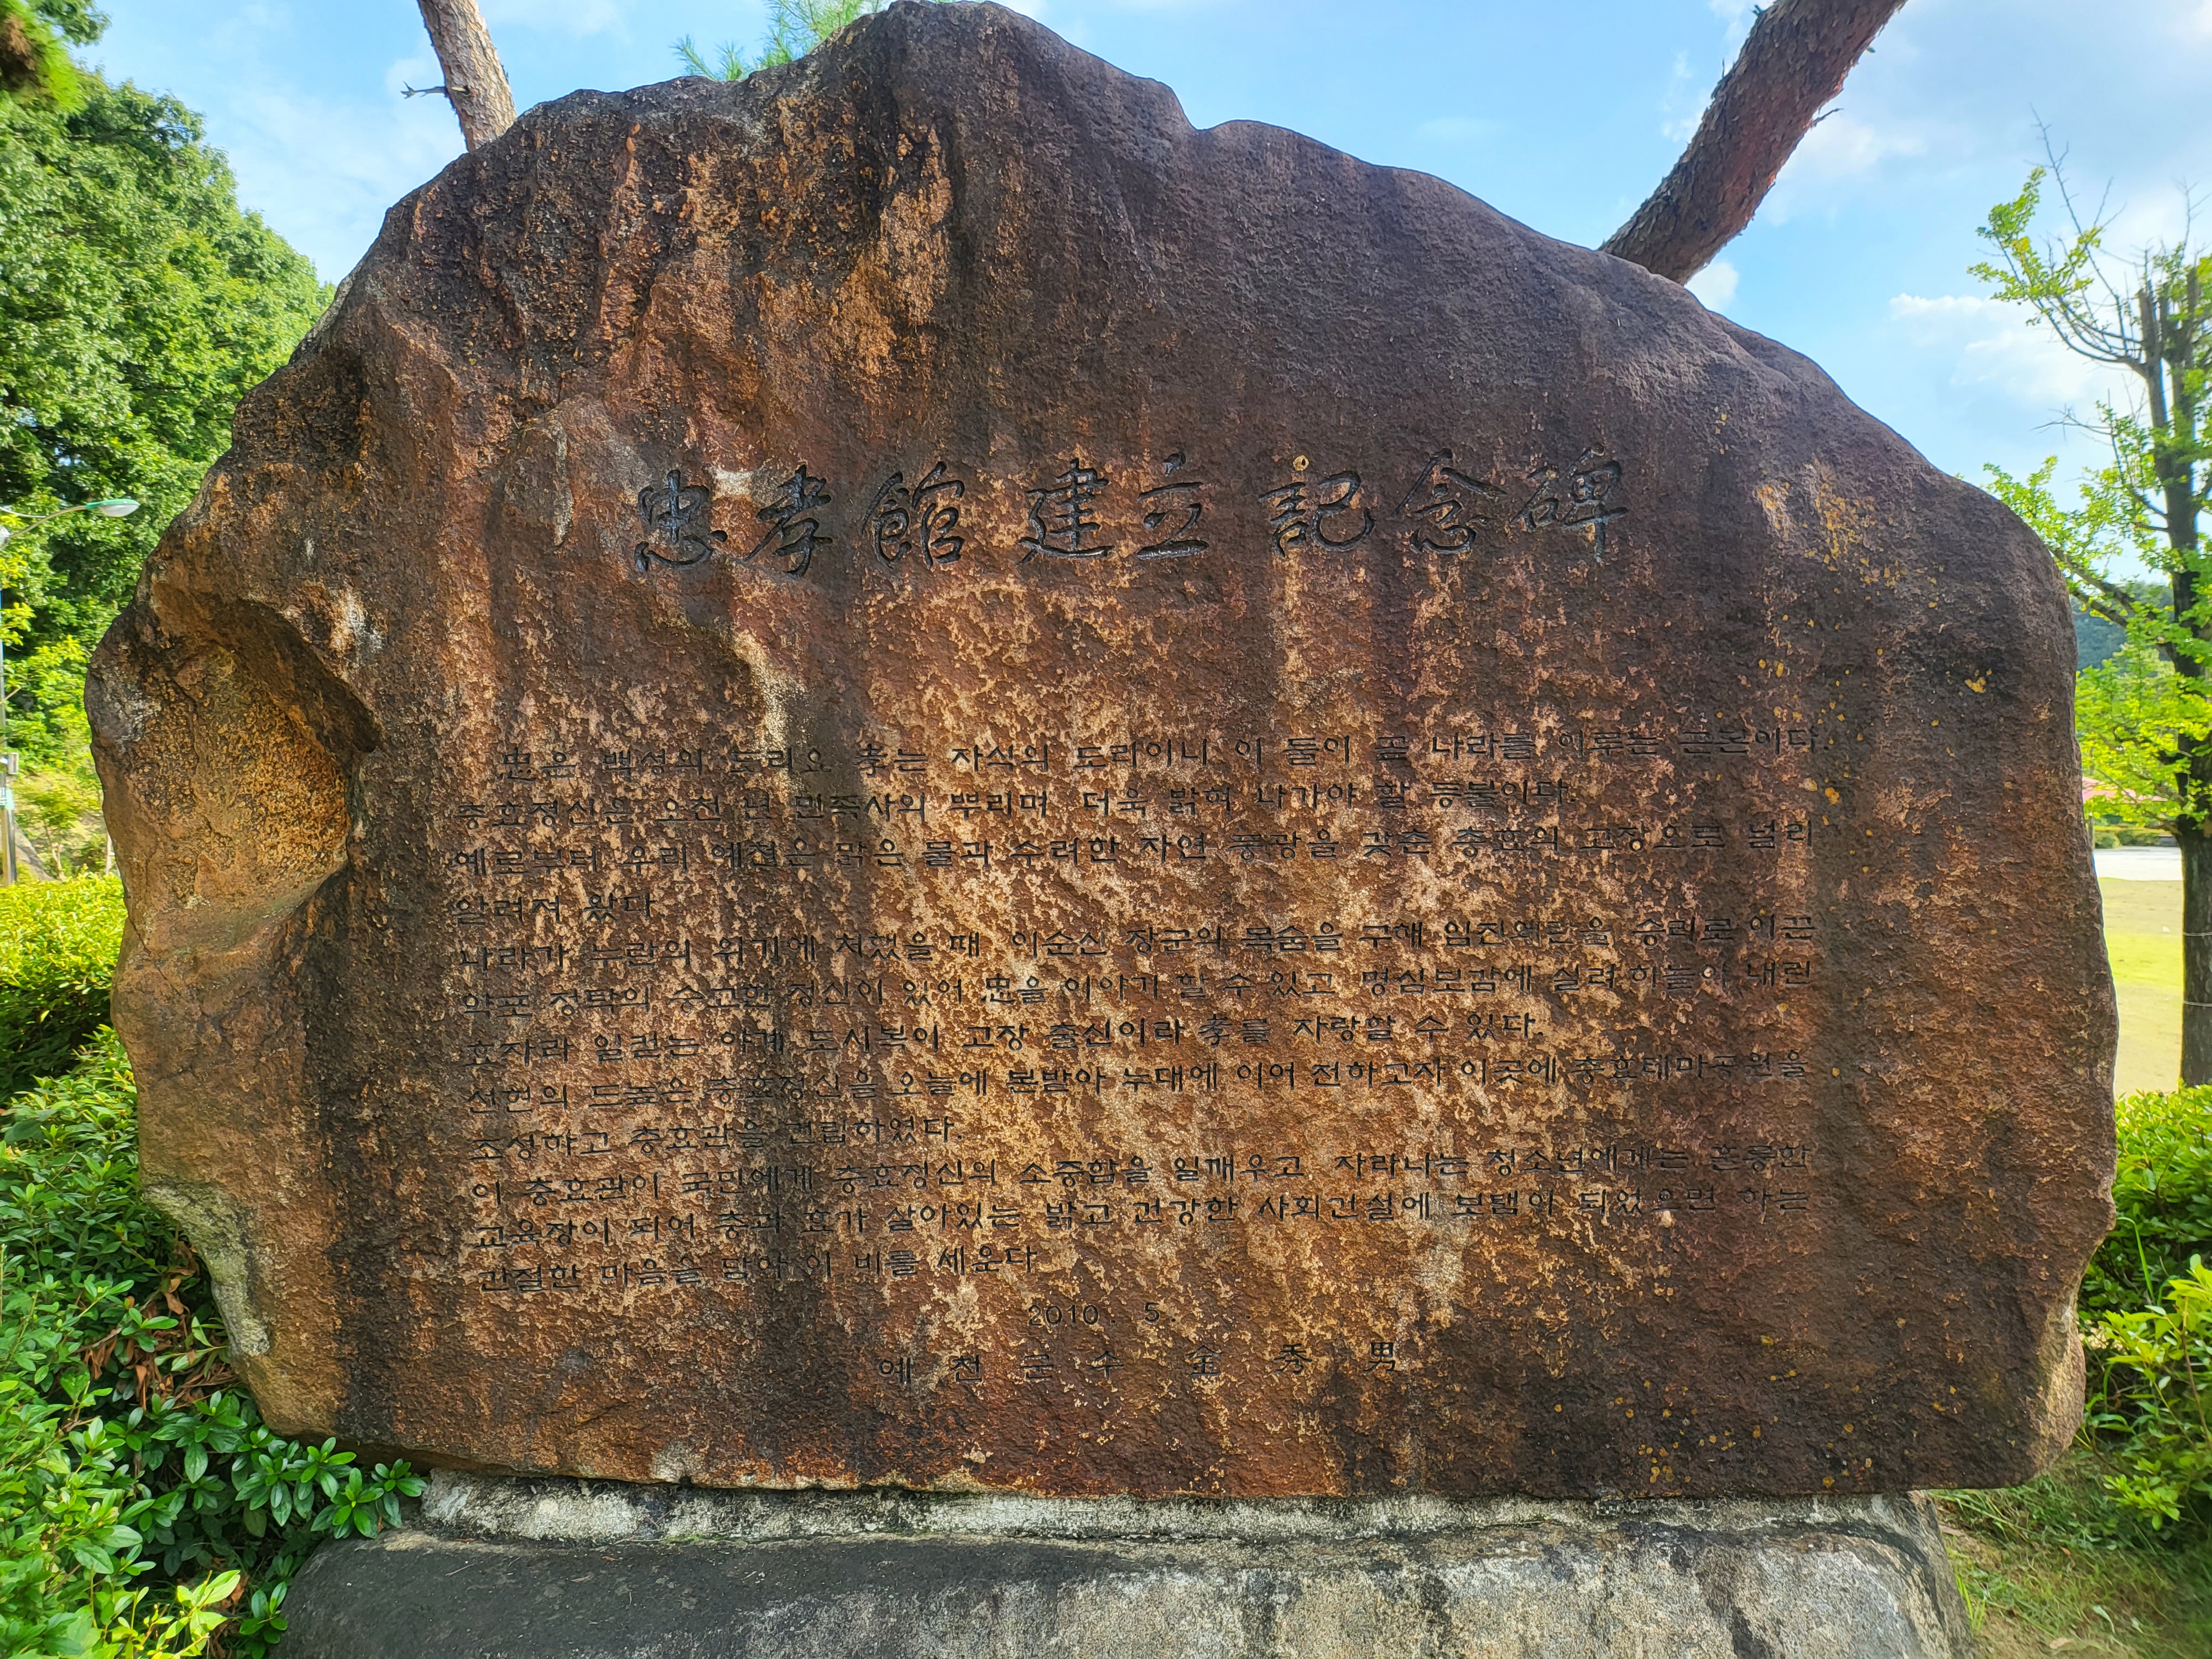 忠孝館 建立 記念碑
忠은 백성의 도리요 孝는 자식의 도리이니 이 둘이 곧 나라를 이루는 근본이다.
충효정신은 오천 년 민족사의 뿌리며 더욱 밝혀 나가야 할 등불이다.
예로부터 우리 예천은 맑은 물과 수려한 자연 풍광을 갖춘 충효의 고장으로 널리
알려져 왔다.
나라가 누란의 위기에 처했을 때 이순신 장군의 목숨을 구해 임진왜란을 승리로 이끈
약포 정탁의 숭고한 정신이 있어 忠을 이야기 할 수 있고 명심보감에 실려 하늘이 내린
효자라 일컫는 야계 도시복이 고장 출신이라 孝를 자랑할 수 있다.
선현의 드높은 충효정신을 오늘에 본받아 누대에 이어 전하고자 이곳에 충효테마공원을
조성하고 충효관을 건립하였다.
이 충효관이 국민에게 충효정신의 소중함을 일깨우고 자라나는 청소년에게는 훌륭한
교육장이 되어 충과 효가 살아있는 밝고 건강한 사회건설에 보탬이 되었으면 하는
간절한 마음을 담아 이 비를 세운다
2010. 5.
예천군수 金秀男